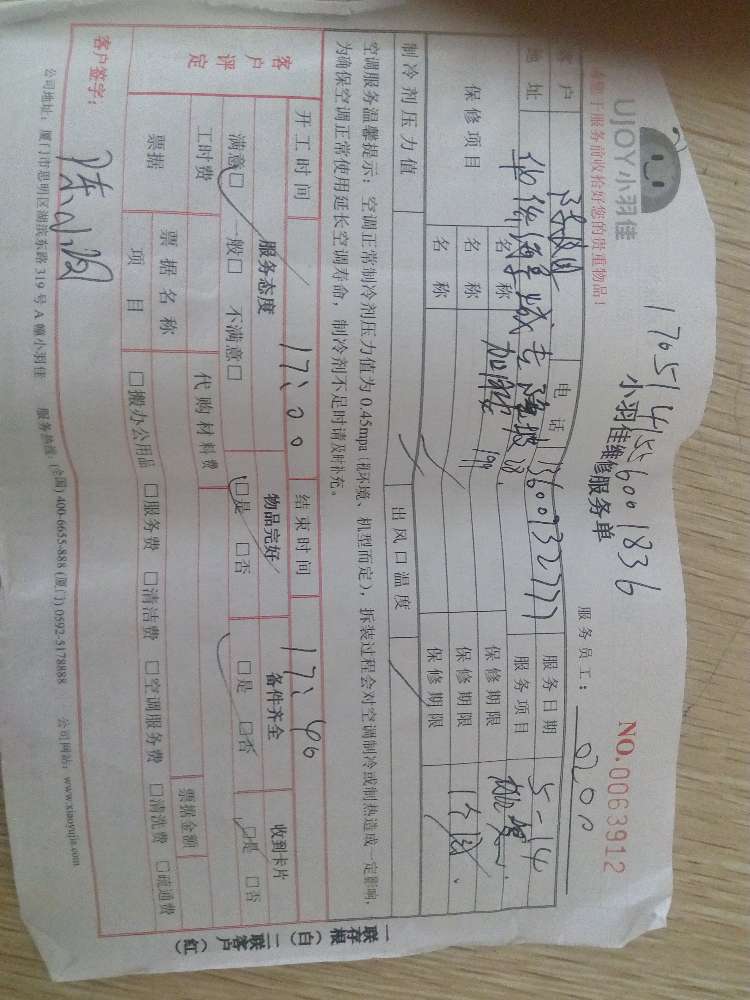 1705145560018 36
UJOY小羽佳
小羽佳维修服务单
NO.0063912
于服务前收拾好您的贵重物品！
服务员工： 0200
客户 电话 13600932777 服务日期 5-14
地址 服务项目
保修项目 名称 保修期限
名称 保修期限
名称 保修期限
制冷剂压力值 出风口温度
空调服务温馨提示：空调正常制冷剂压力值为0.45mpa（视环境、机型而定），拆装过程会对空调制冷或制热造成一定影响，
为确保空调正常使用延长空调寿命，制冷剂不足时请及时补充。
开工时间 17:00 结束时间 17:40
客户评定 服务态度 物品完好 备件齐全 收到卡片
满意□ 一般□ 不满意□ □是 □否 □是 □否 □是 □否
工时费 代购材料费
票据 票据名称 票据金额
项目 □搬办公用品 □服务费 □清洁费 □空调服务费 □清洗费 □疏通费
客户签字：
公司地址：厦门市思明区湖滨东路319号A幢小羽佳 服务热线：(全国) 400-6655-888 (厦门) 0592-5178888 公司网站：www.xiaoyujia.com
一联存根（白）二联客户（红）